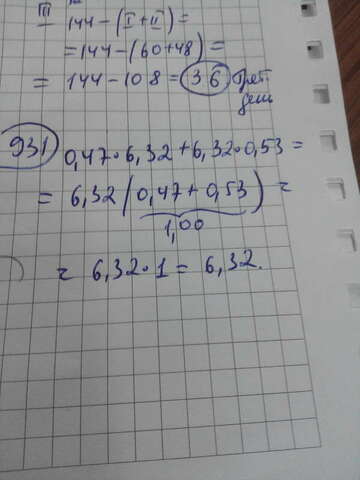 III - 144 - (I + II) =
= 144 - (60 + 48) =
= 144 - 108 = 36 трет. день
931 0,47 · 6,32 + 6,32 · 0,53 =
= 6,32 (0,47 + 0,53) =
1,00
= 6,32 · 1 = 6,32.